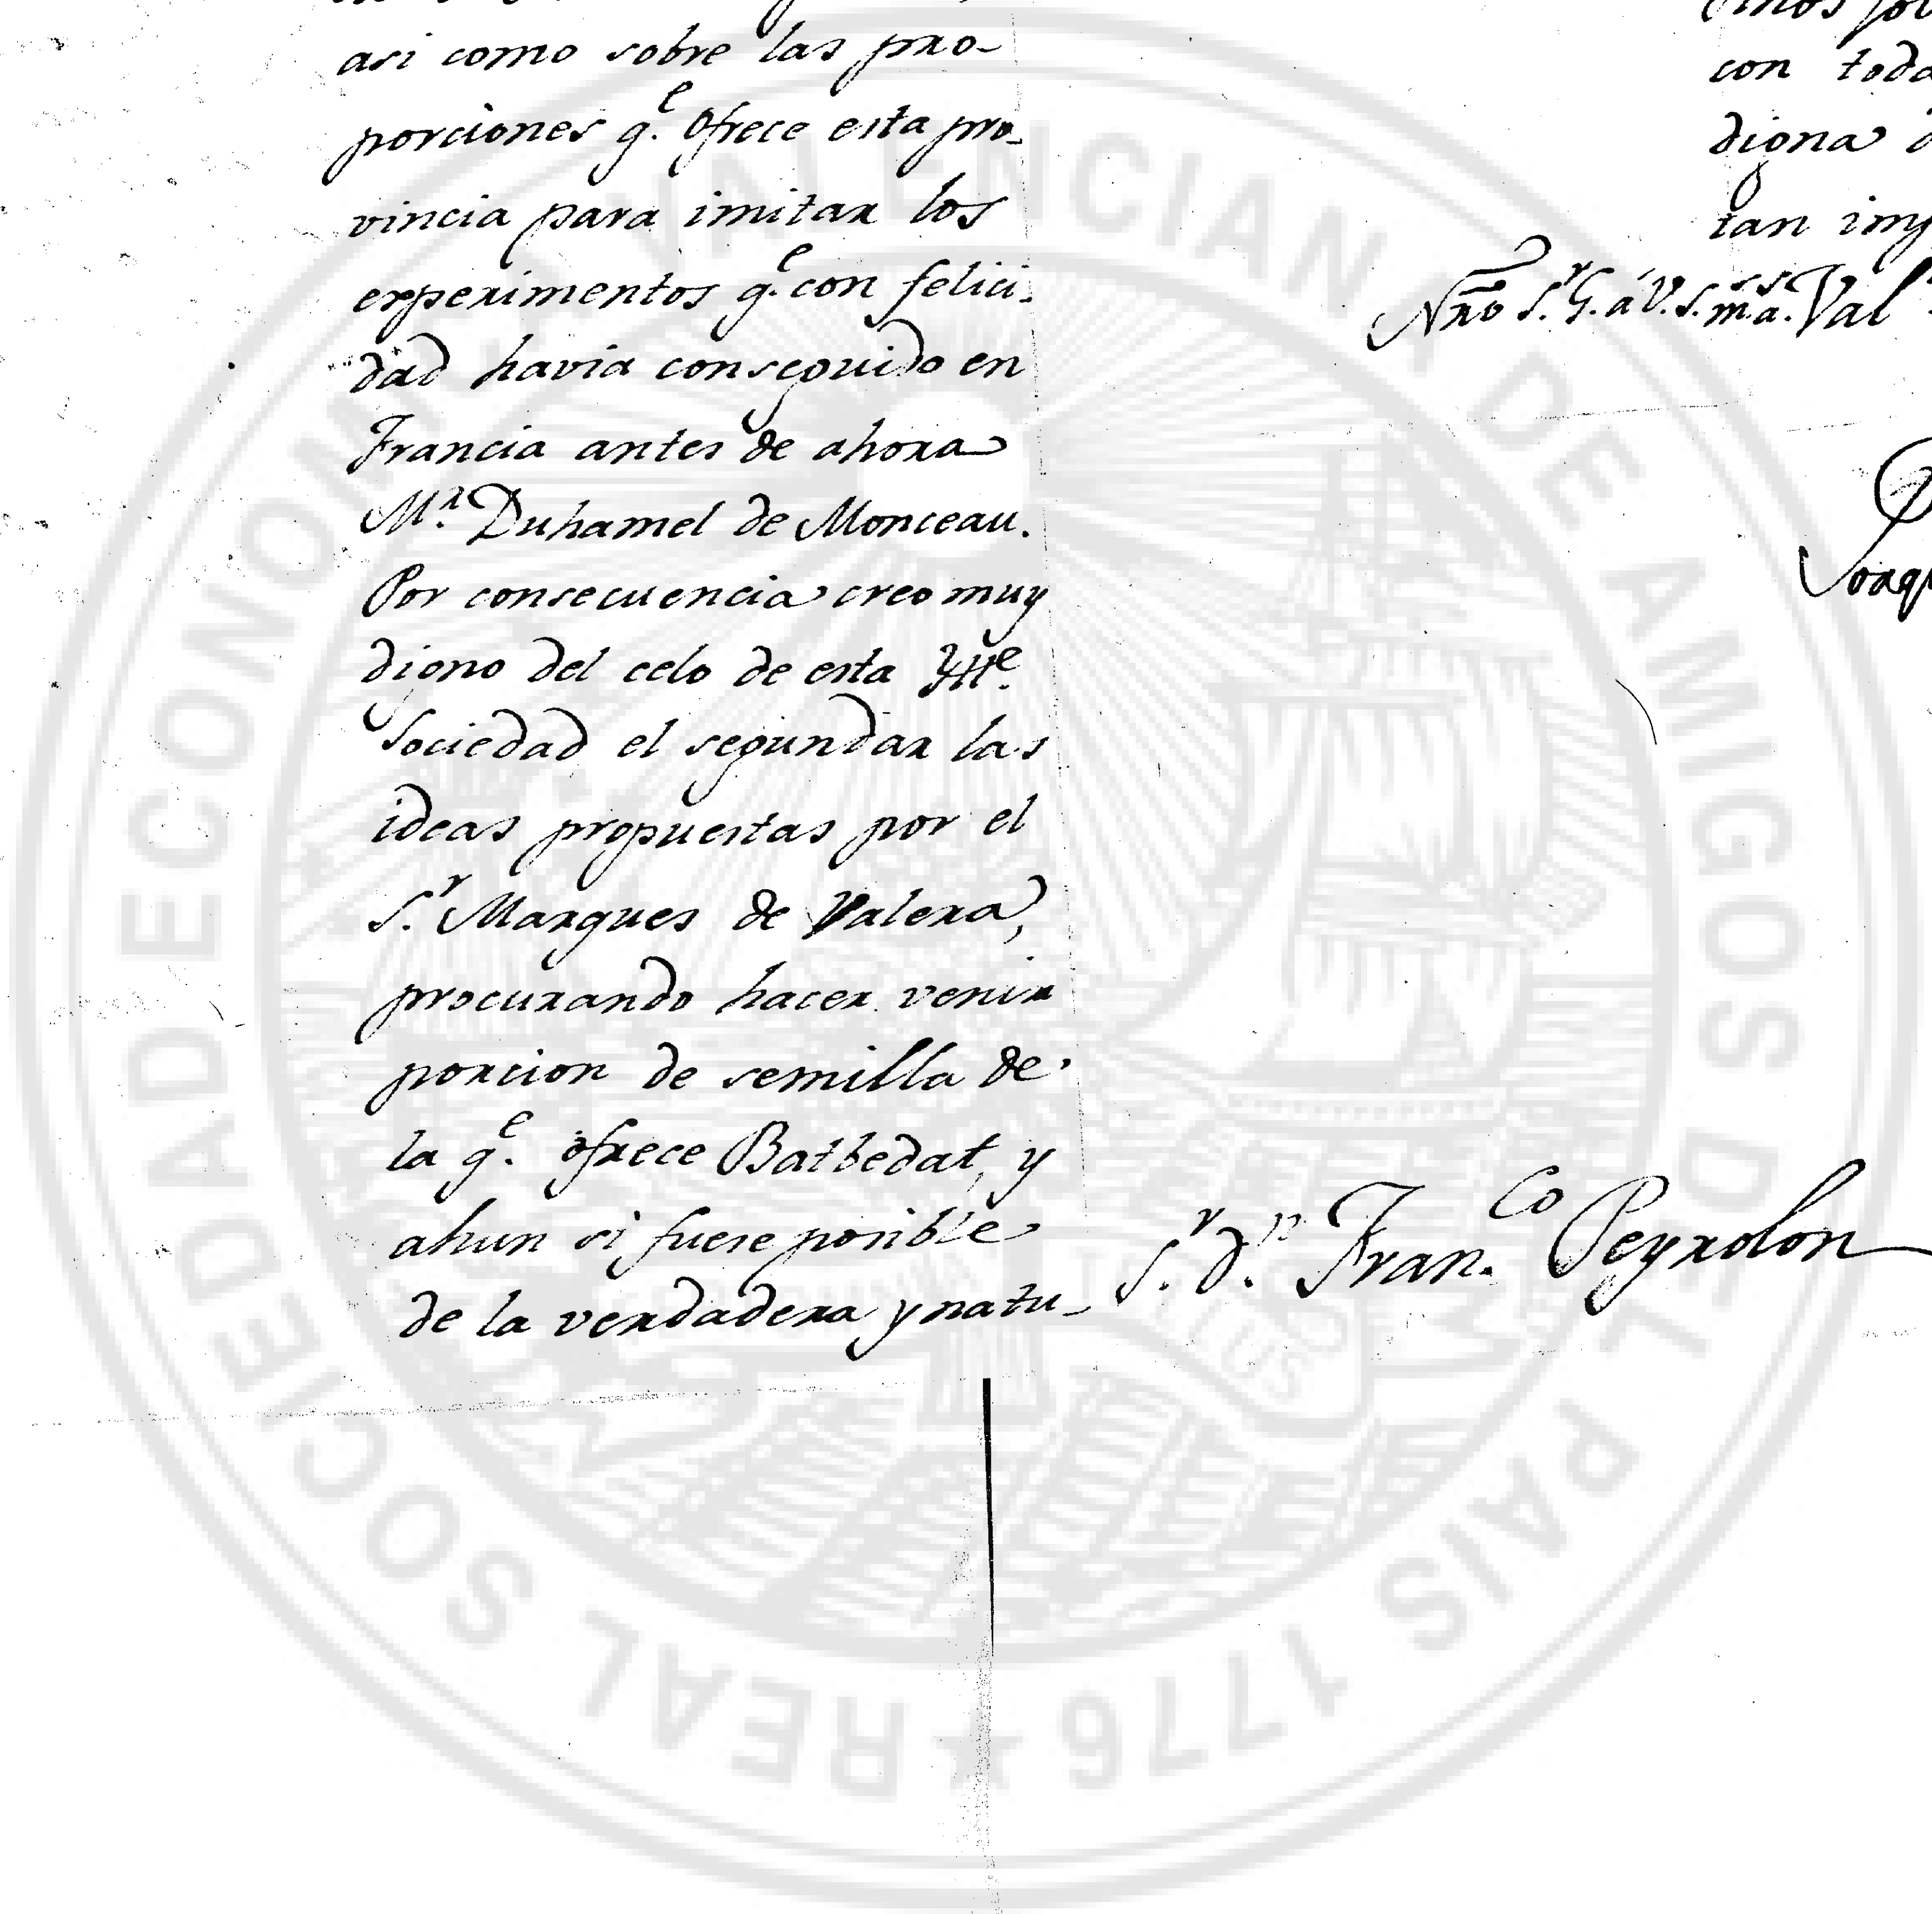 asi como sobre las pro-
porciones q.e ofrece esta pro-
vincia para imitar los
experimentos q.e con felici-
dad havia conseguido en
Francia antes de ahora
M.r Duhamel de Monceau.
Por consecuencia creo muy
digno del celo de esta Ylle.
Sociedad el segundar las
ideas propuestas por el
S.r Marques de Valera,
procurando hacer venir
porcion de semilla de
la q.e ofrece Batbedat, y
ahun si fuere posible
de la verdadera y natu-
con toda
digna
tan imp
Nro S.r G. a V. S. m.s a.s Val
Joaq
S.r D.n Fran.co Peyrolon
REAL SOCIEDAD ECONOMICA VALENCIANA DE AMIGOS DEL PAIS 1776